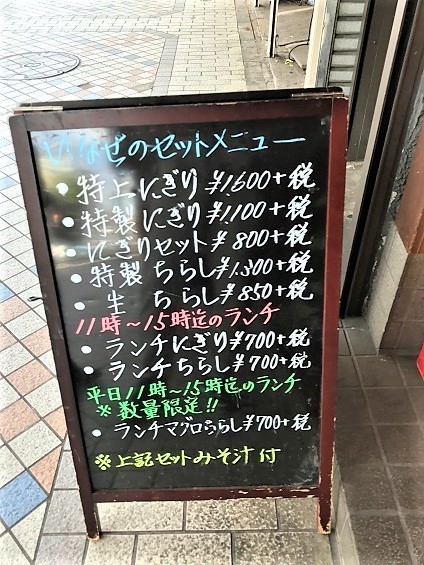 いなせのセットメニュー
・特上にぎり ¥1,600+税
・特製にぎり ¥1,100+税
・にぎりセット ¥800+税
・特製ちらし ¥1,300+税
・生ちらし ¥850+税
11時~15時迄のランチ
・ランチにぎり ¥700+税
・ランチちらし ¥700+税
平日11時~15時迄のランチ
※数量限定!!
・ランチマグロちらし ¥700+税
※上記セットみそ汁付